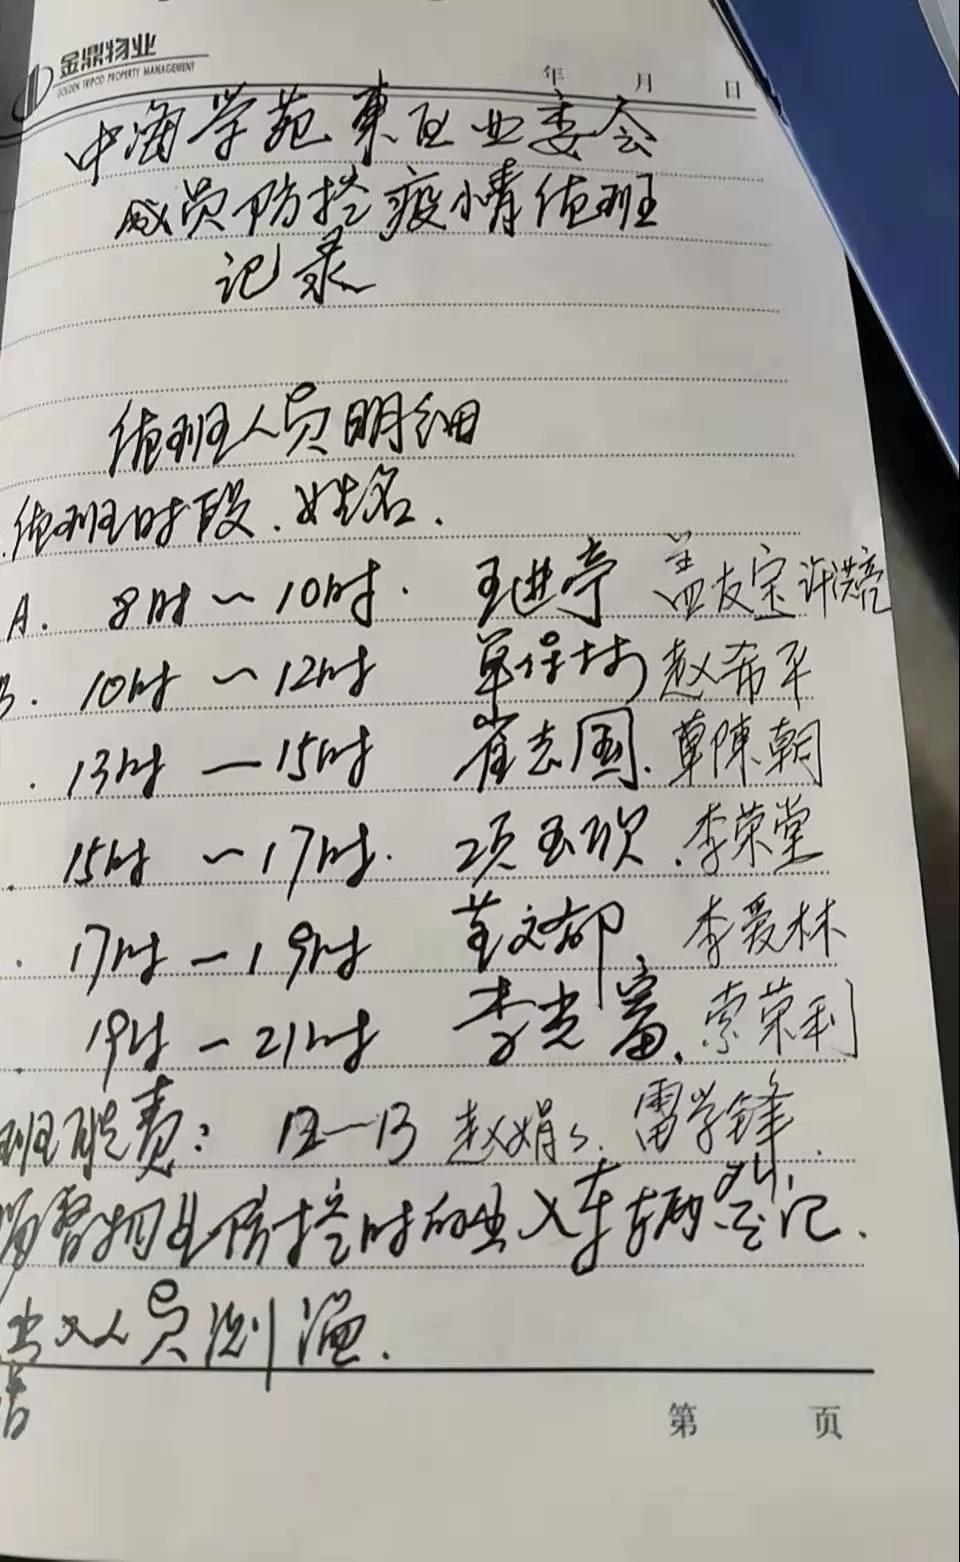 金鼎物业
GOLDEN TRIPOD PROPERTY MANAGEMENT
年 月 日
中海学苑東区业委会
成员防控疫情值班
记录
值班人员明细
值班时段.姓名.
A. 8时~10时. 王进亭 盖友宝 许洪亮
. 10时~12时 单保坊 赵希平
. 13时—15时 崔志国.草陳朝
. 15时~17时. 项玉欣.李荣堂
. 17时—19时 董文都 李爱林
. 19时—21时 李光富.索荣利
班职责: 12—13 赵娟 雷学锋
物业防控时的出入车辆登记.
出入人员测温.
第 页